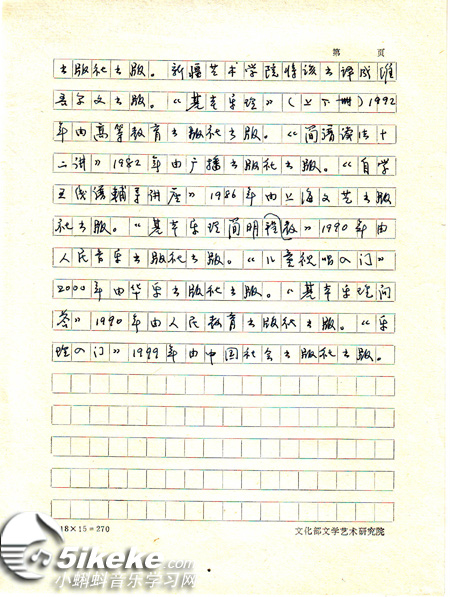 第 页
出版社出版。新疆艺术学院将该书译成维
吾尔文出版。《基本乐理》(上下册)1992
年由高等教育出版社出版。《简谱读法十
二讲》1982年由广播出版社出版。《自学
五线谱辅导讲座》1986年由上海文艺出版
社出版。《基本乐理简明教程》1990年由
人民音乐出版社出版。《儿童视唱入门》
2000年由华乐出版社出版。《基本乐理问
答》1990年由人民教育出版社出版。《乐
理入门》1999年由中国社会出版社出版。
18×15=270
文化部文学艺术研究院
5ikeke.com
小蝌蚪音乐学习网